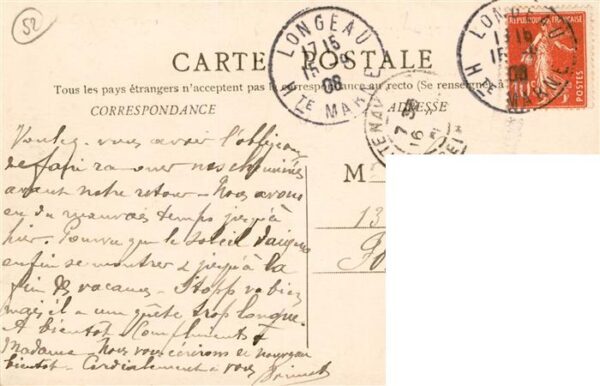 52
CARTE POSTALE
Tous les pays étrangers n'acceptent pas la correspondance au recto (Se renseigner à
CORRESPONDANCE
ADRESSE
LONGEAU
17 15
15 -9
08
Hte MARNE
LONGEAU
17 15
15
08
Hte MARNE
REPUBLIQUE FRANÇAISE
POSTES
TENAY
7
16
Voulez-vous avoir l'obligeance
de faire ramoner nos cheminées
avant notre retour - Nous avons
eu du mauvais temps jusqu'à
hier. Pourvu que le soleil daigne
enfin se montrer jusqu'à la
fin des vacances - Stopp va bien
mais il a une quête trop longue.
A bientôt - Compliments à
Madame - Nous vous écrirons de nouveau
bientôt - Cordialement à vous
M
13